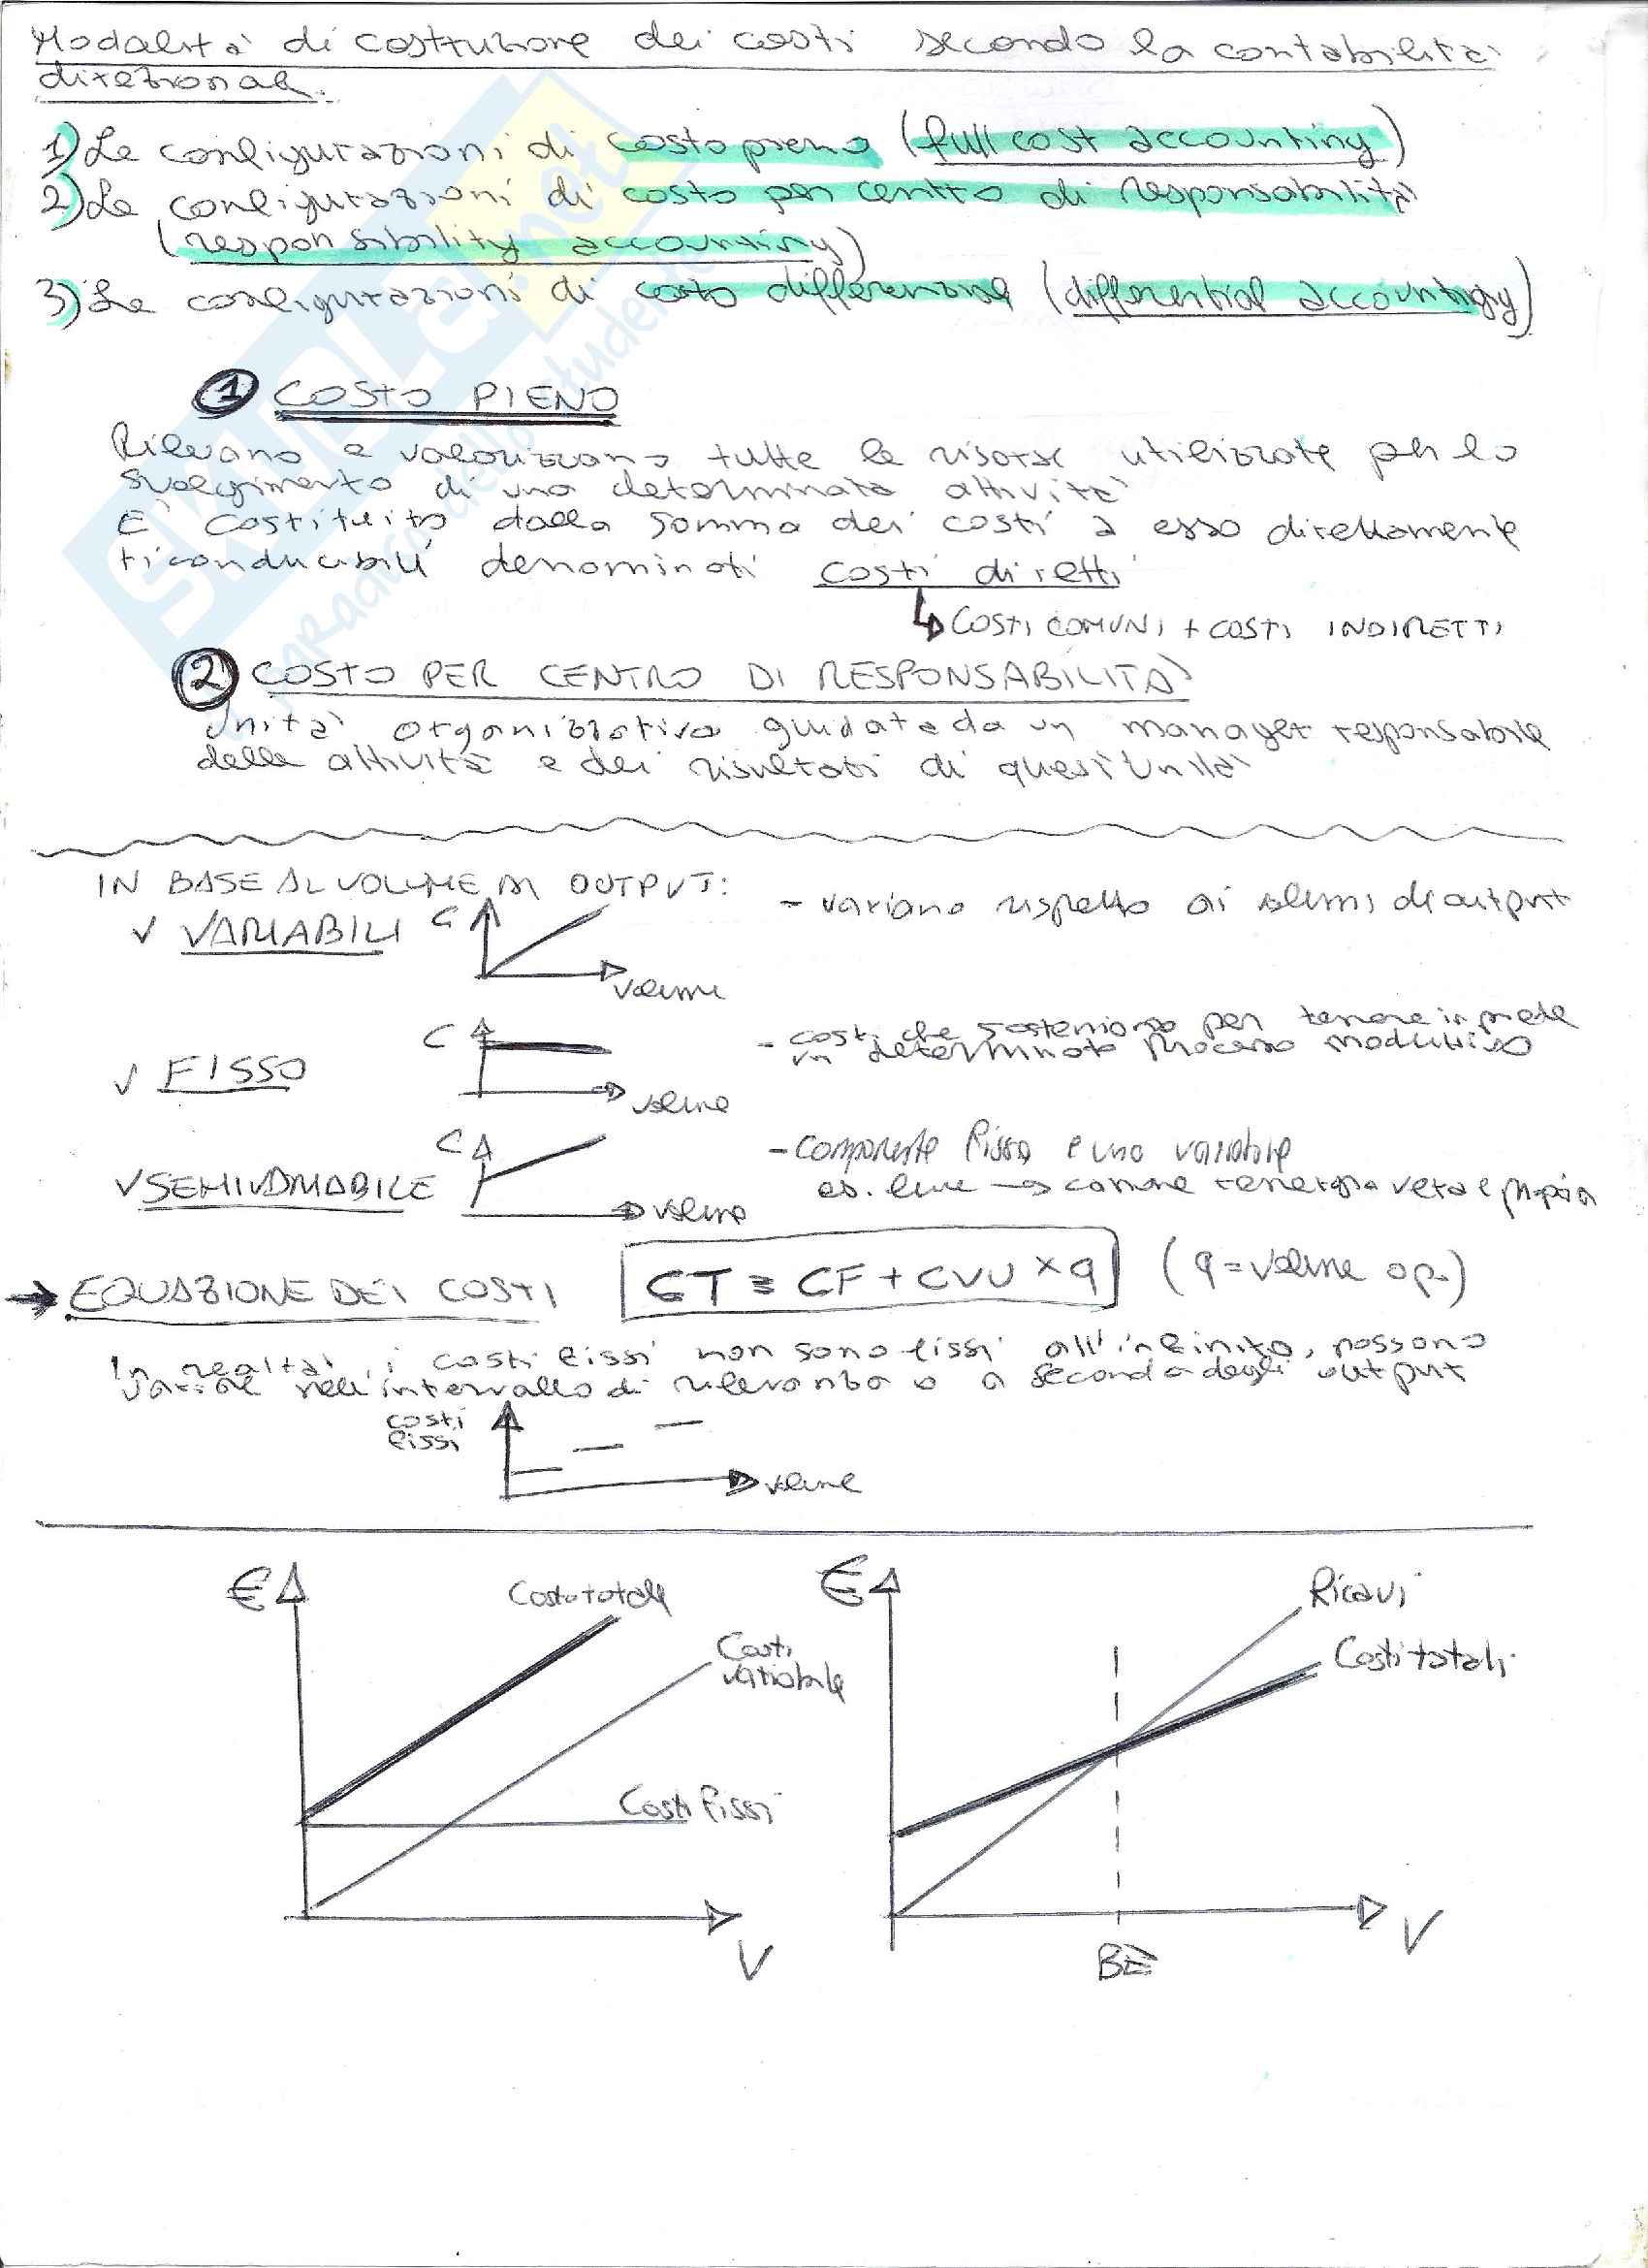 Modalità di costruzione dei costi secondo la contabilità
direzionale.
1) Le configurazioni di costo pieno (full cost accounting)
2) Le configurazioni di costo per centro di responsabilità
(responsibility accounting)
3) Le configurazioni di costo differenziale (differential accounting)
1 COSTO PIENO
Rilevano e valorizzano tutte le risorse utilizzate per lo
svolgimento di una determinata attività
E' costituito dalla somma dei costi a esso direttamente
riconducibili denominati costi diretti
↳ COSTI COMUNI + COSTI INDIRETTI
2 COSTO PER CENTRO DI RESPONSABILITÀ
Unità organizzativa guidata da un manager responsabile
delle attività e dei risultati di quest'unità
IN BASE AL VOLUME DI OUTPUT:
√ VARIABILI C volume - variano rispetto ai volumi di output
√ FISSO C volume - costi che sosteniamo per tenere in piedi
un determinato processo produttivo
√ SEMIVARIABILE C volume - componente fissa e una variabile
es. luce → canone + energia vera e propria
→ EQUAZIONE DEI COSTI CT = CF + CVU × q (q = volume op.)
In realtà, i costi fissi non sono fissi all'infinito, possono
variare nell'intervallo di rilevanza o a seconda degli output
costi
fissi
volume
€ Costo totale
Costi
variabile
Costi fissi
V
€ Ricavi
Costi totali
BE
V
SKUOLA.net